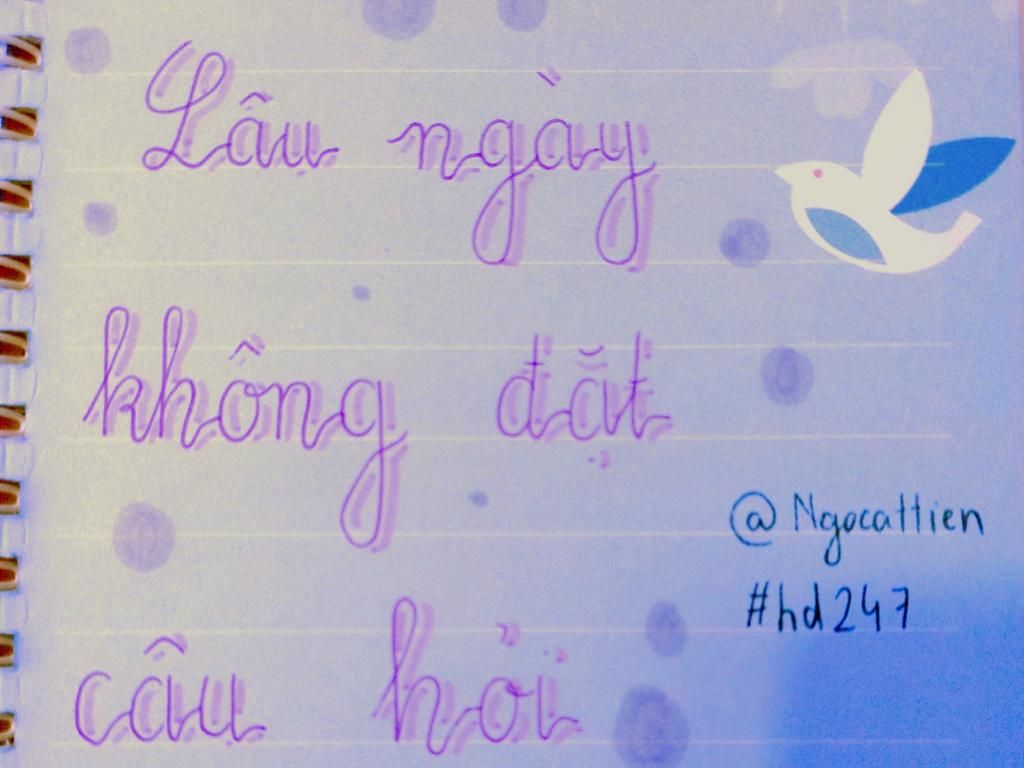 Lâu ngày
không đặt
@Ngocattien
#hd247
câu hỏi